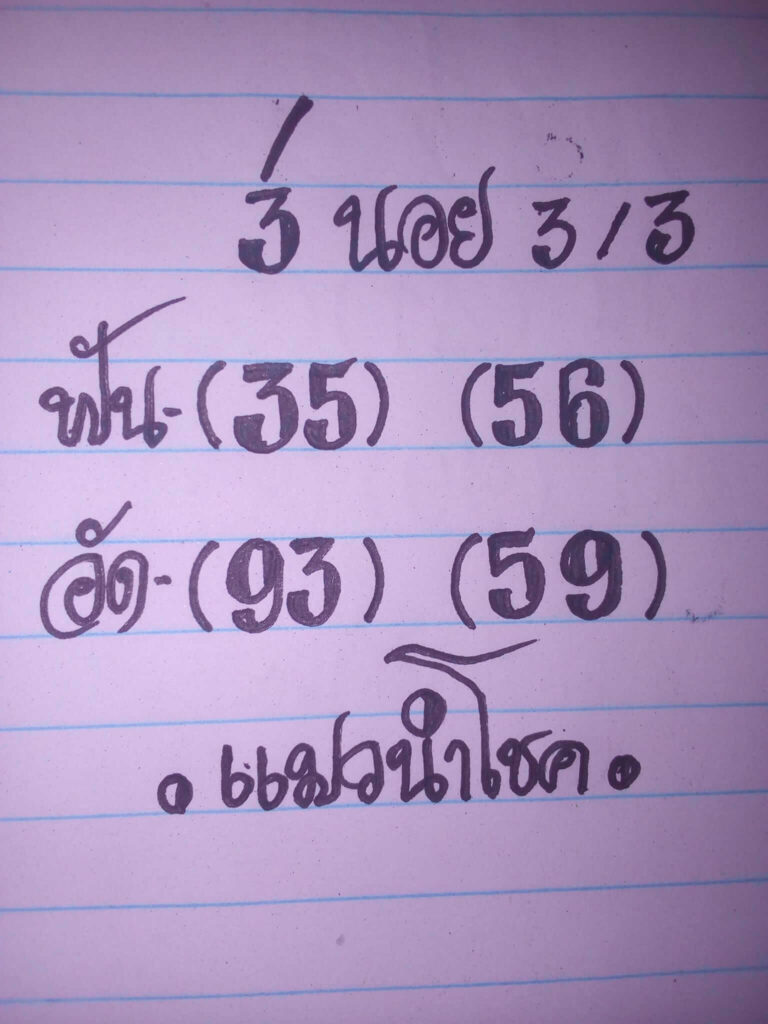 3่ นอย 3/3
ฟัน-(35) (56)
อัด-(93) (59)
.แมวนำโชค.